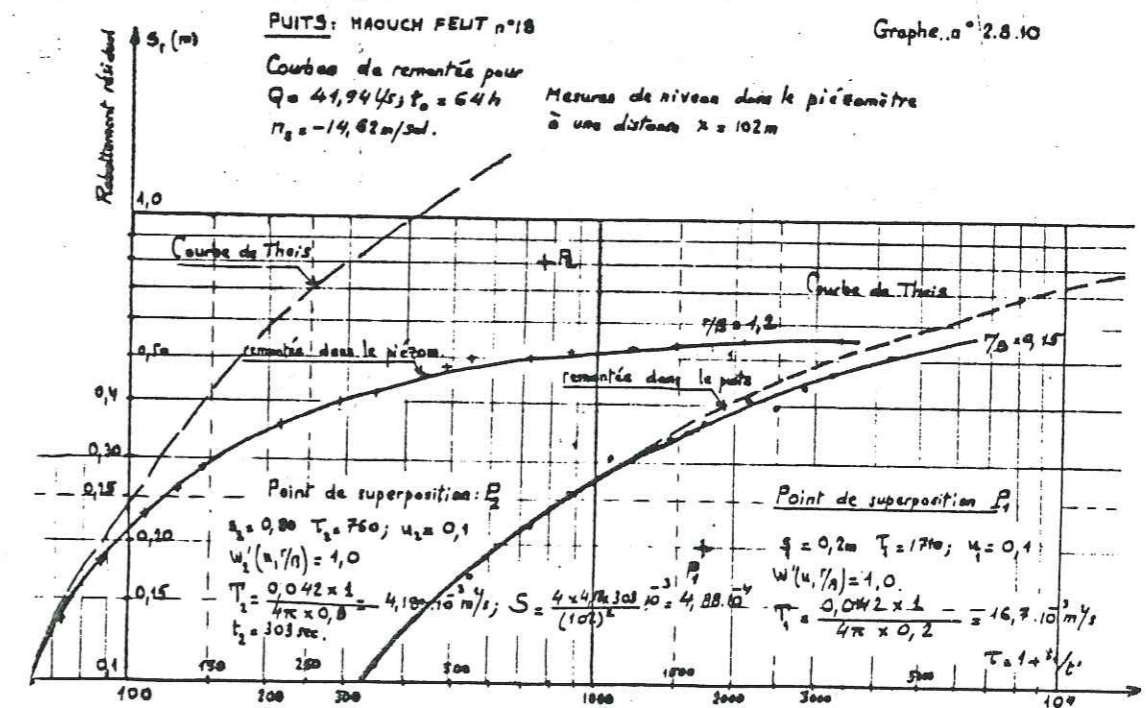 PUITS: HAOUCH FELIT n°18
Graphe. n° 2.8.10
Rabattement résiduel
Sr (m)
Courbes de remontée pour
Q = 41,94 l/s; t₀ = 64h
= -14,62 m/sol.
Mesures de niveau dans le piézomètre
à une distance x = 102m
1,0
Courbe de Theis
P2
Courbe de Theis
r/B = 1,2
r/B = 0,15
0,50
remontée dans le piézom.
remontée dans le puits
0,4
0,30
0,25
Point de superposition: P2
s2 = 0,80 τ2 = 760; u2 = 0,1
W2'(u, r/B) = 1,0
T2 = 0,042 x 1 / 4π x 0,8 = 4,18 . 10⁻³ m²/s; S = 4 x 4,18 x 303 . 10⁻³ / (102)² = 4,88 . 10⁻⁴
t2 = 303 sec.
Point de superposition P1
s1 = 0,2m τ1 = 1710; u1 = 0,1
W'(u, r/B) = 1,0
T1 = 0,042 x 1 / 4π x 0,2 = 16,7 . 10⁻³ m²/s
P1
0,20
0,15
0,1
100 150 200 250 300 500 1000 1500 2000 3000 5000 10⁴